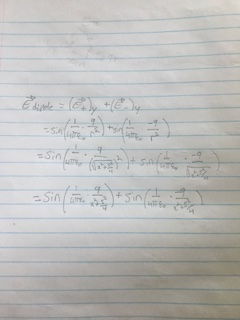 E⃗dipole = (E⃗+)y + (E⃗-)y
= sin(1/4πε₀ · q/r²) + sin(1/4πε₀ · -q/r²)
= sin(1/4πε₀ · q/(√x²+s²/4)²) + sin(1/4πε₀ · -q/√x²+s²/4)
= sin(1/4πε₀ · q/x²+s²/4) + sin(1/4πε₀ · -q/x²+s²/4)